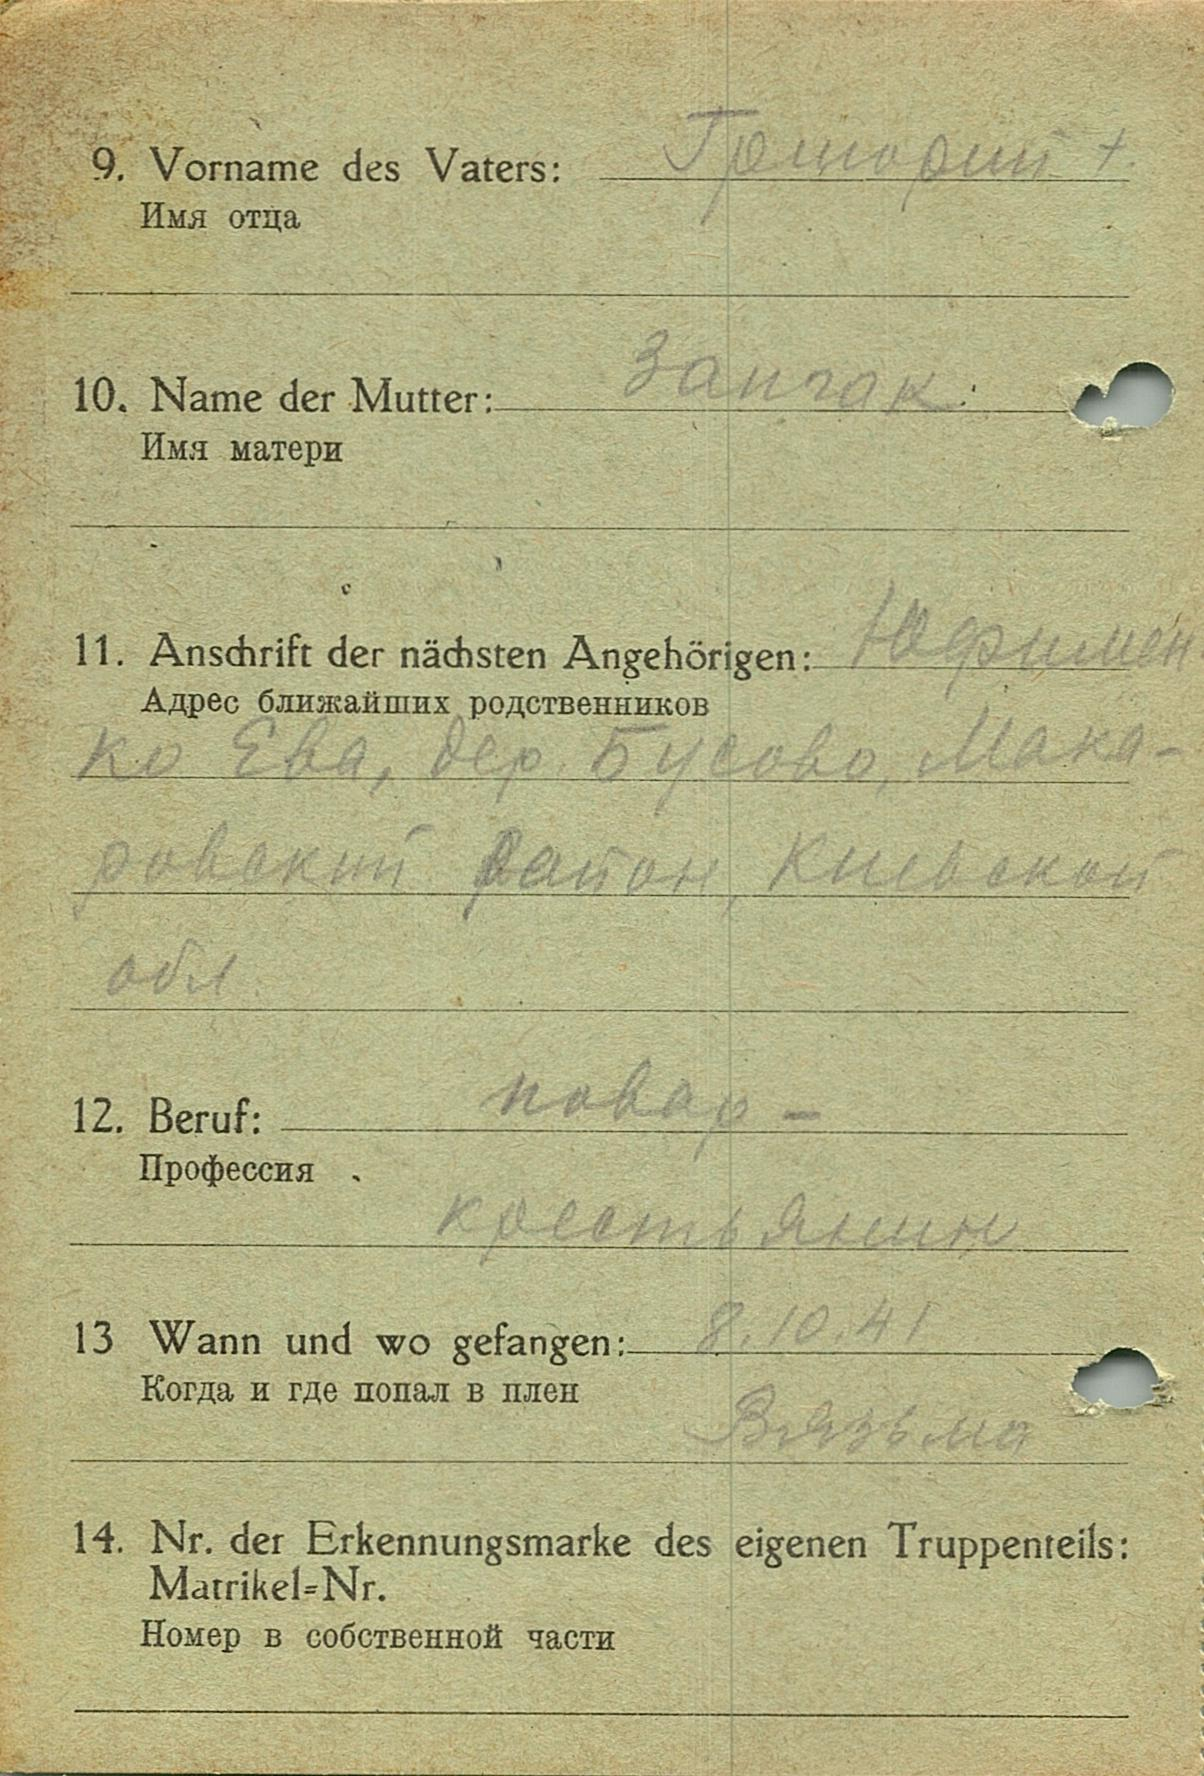 9. Vorname des Vaters: Григорий +
Имя отца
10. Name der Mutter: Запчак
Имя матери
11. Anschrift der nächsten Angehörigen: Юфимен-
Адрес ближайших родственников
ко Ева, дер. Бусово, Мака-
ровский район, Киевской
обл.
12. Beruf: повар -
Профессия
крестьянин
13 Wann und wo gefangen: 8.10.41
Когда и где попал в плен
Вязьма
14. Nr. der Erkennungsmarke des eigenen Truppenteils:
Matrikel=Nr.
Номер в собственной части